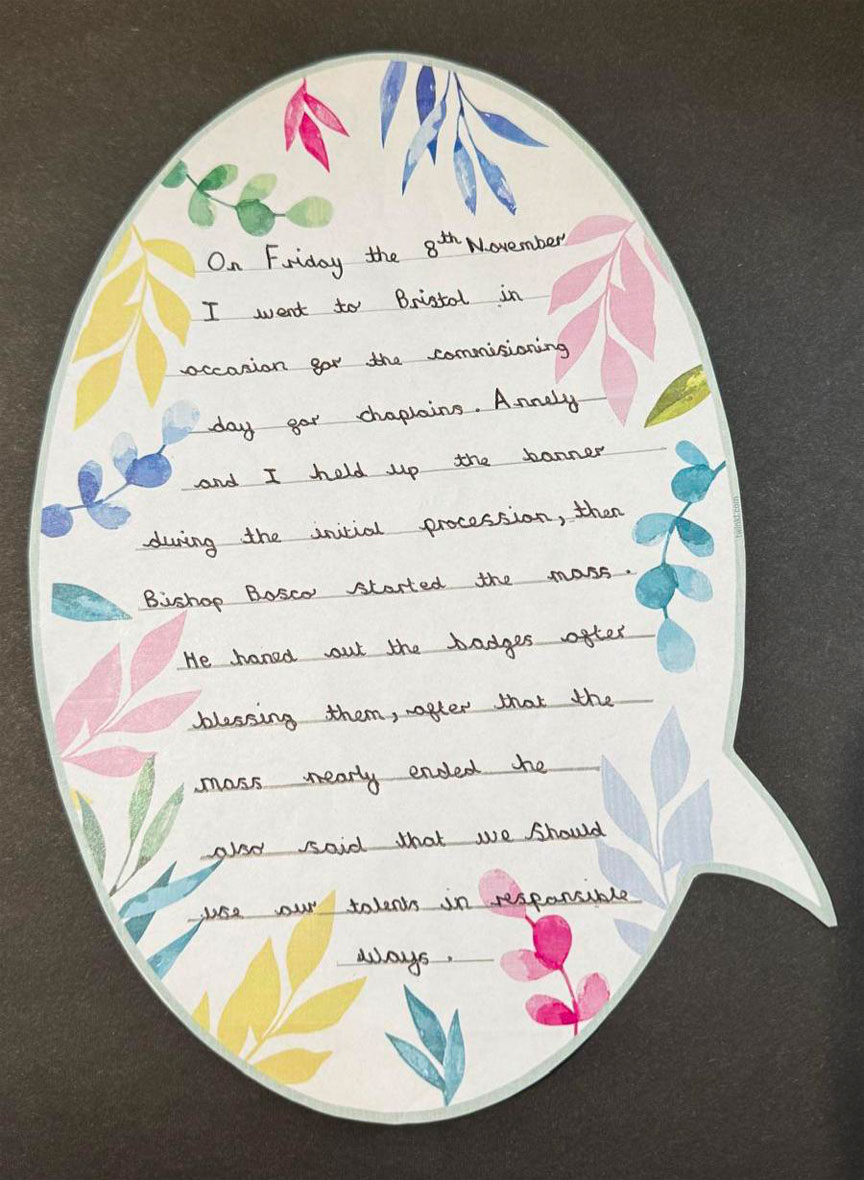 On Friday the 8th November
I went to Bristol in
occasion for the commisioning
day for chaplains. Annely
and I held up the banner
during the initial procession, then
Bishop Bosco started the mass.
He haned out the badges after
blessing them, after that the
mass nearly ended he
also said that we should
use our talents in responsible
ways.
twinkl.com